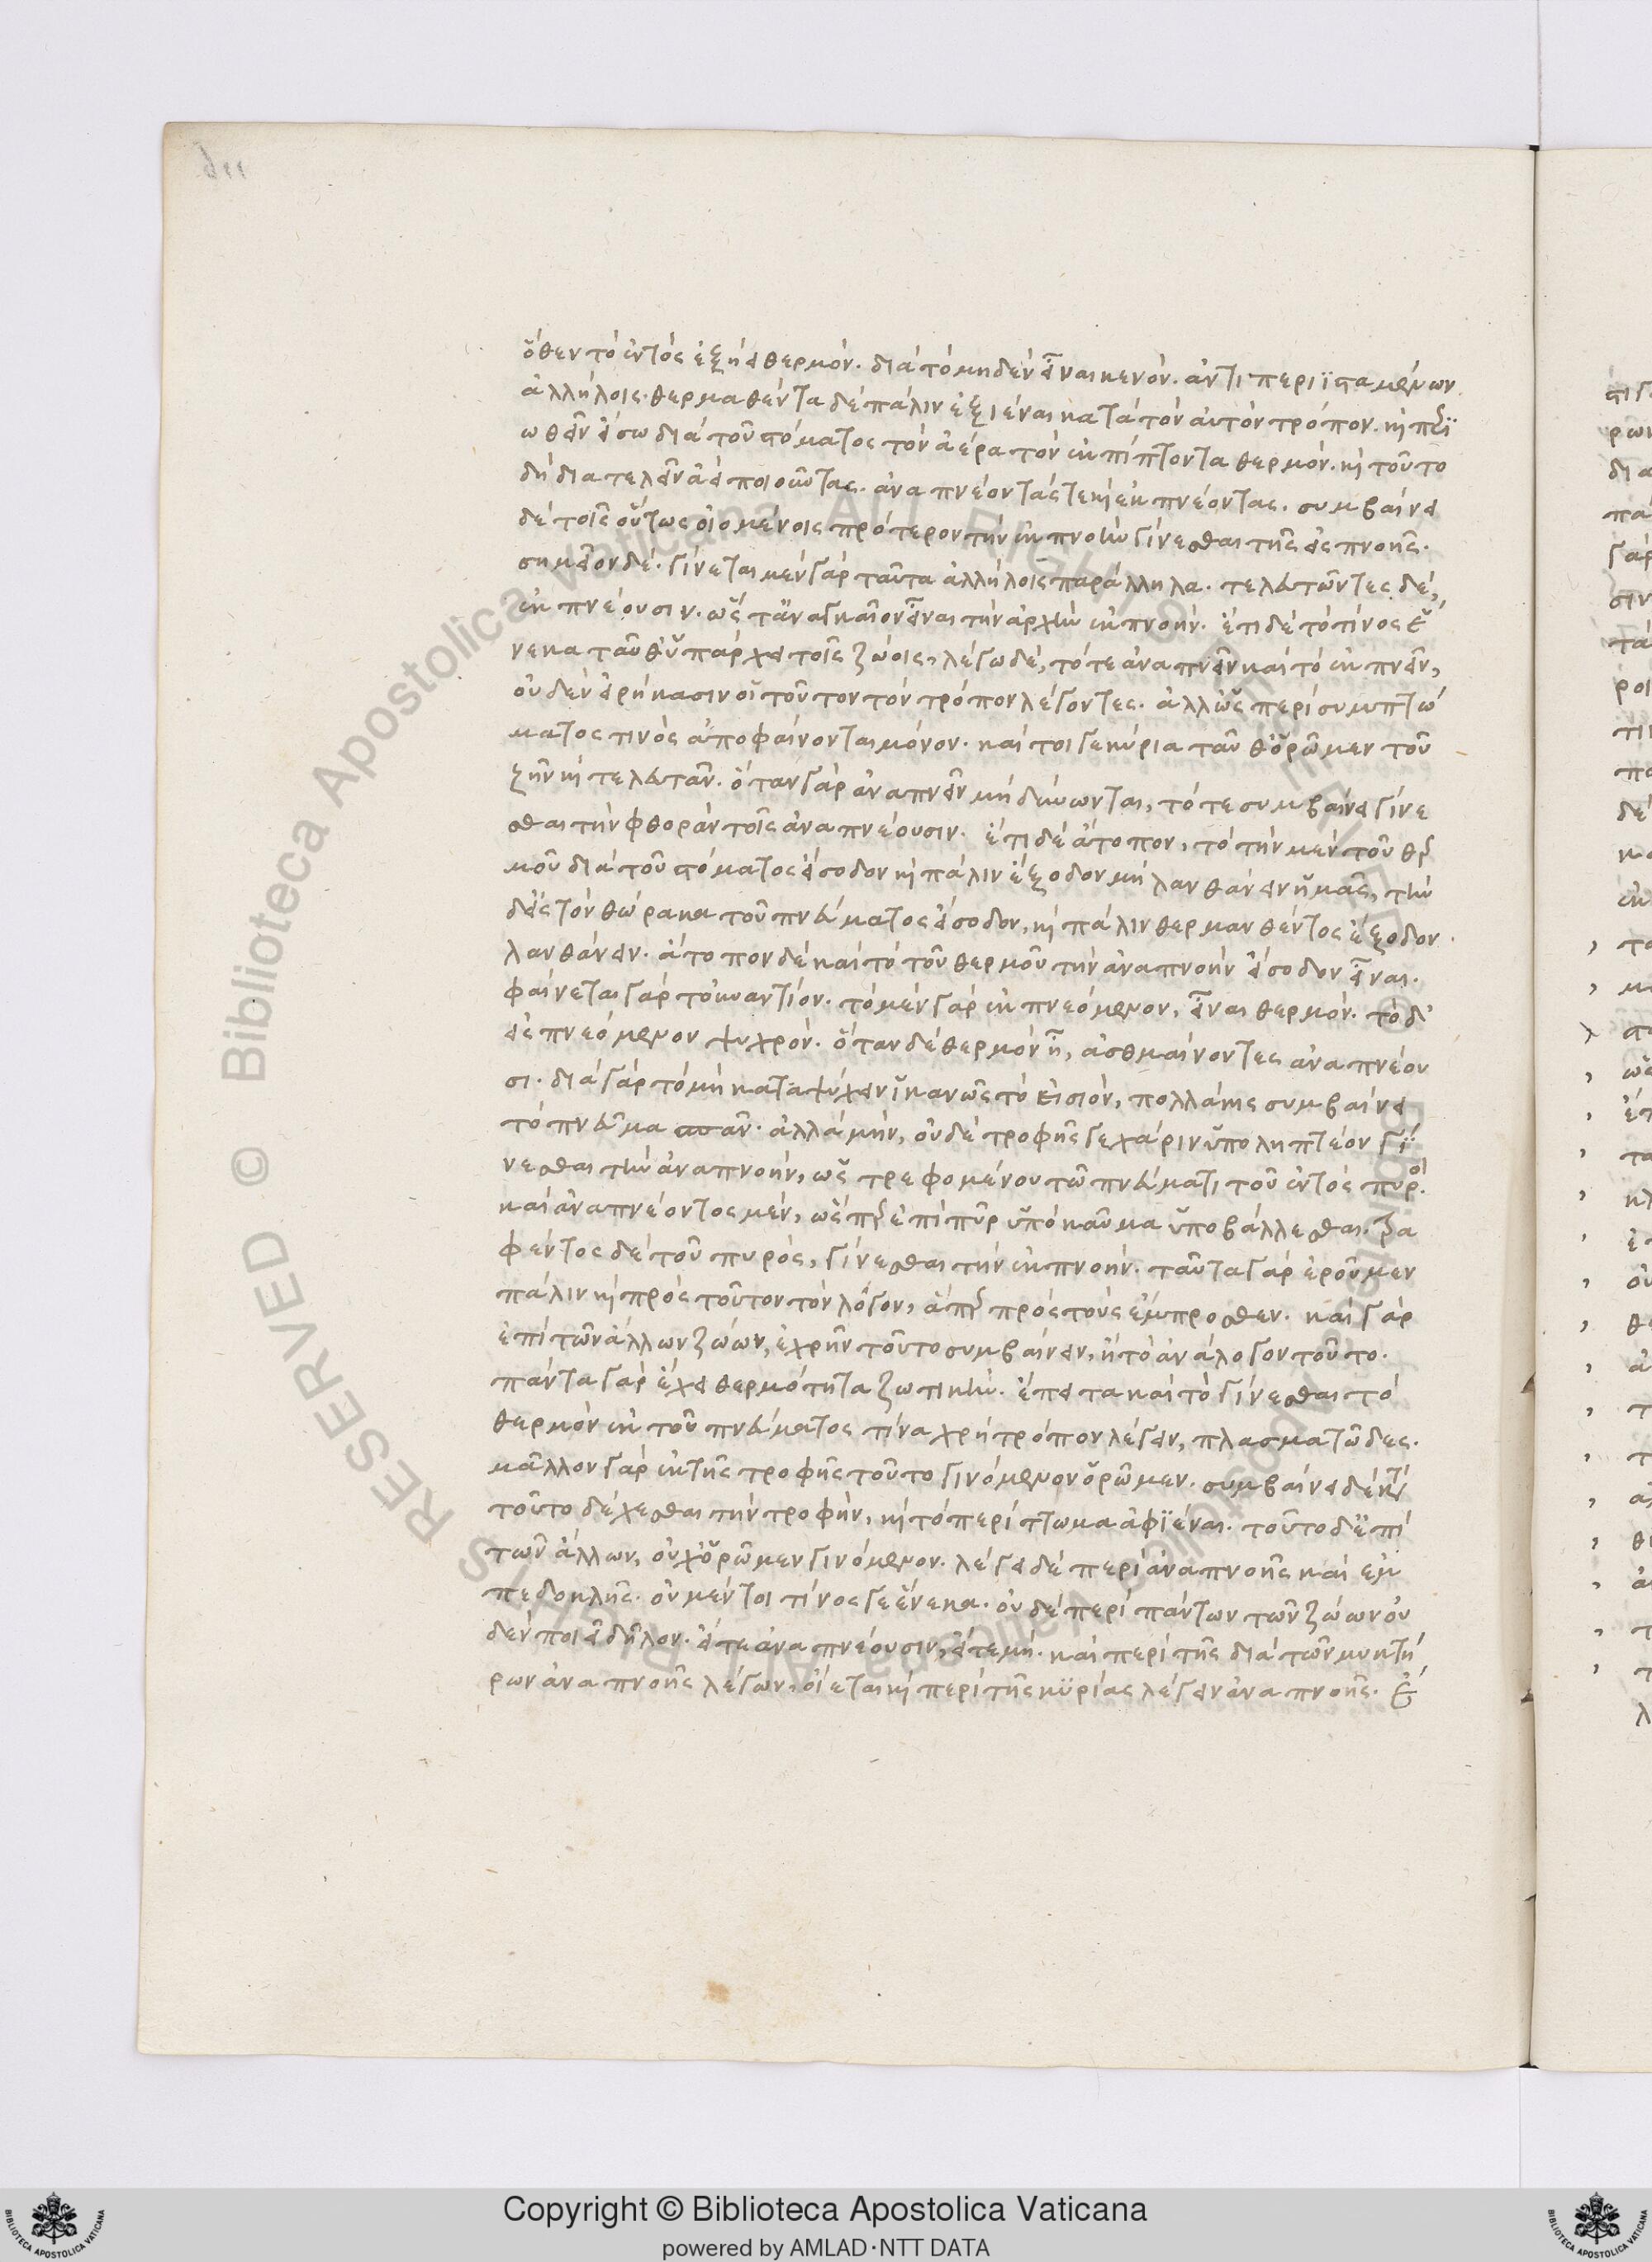 ὅθεν τὸ ἐντὸς ἐξῄει θερμόν. διὰ τὸ μηδὲν εἶναι κενόν. ἀντιπεριϊσταμένων
ἀλλήλοις. θερμαθέντα δὲ πάλιν ἐξιέναι κατὰ τὸν αὐτὸν τρόπον. κὶ περι
ωθεῖν εἴσω διὰ τοῦ στόματος τὸν ἀέρα τὸν ἐκπίπτοντα θερμόν. κὶ τοῦτο
δὴ διατελεῖν ἀεὶ ποιοῦντας. ἀναπνέοντάς τε κὶ ἐκπνέοντας. συμβαίνει
δὲ τοῖς οὕτως οἰομένοις πρότερον τὴν ἐκπνοὴν γίνεσθαι τῆς εἰσπνοῆς.
σημεῖον δέ. γίνεται μὲν γὰρ ταῦτα ἀλλήλοις παράλληλα. τελευτῶντες δὲ,
ἐκπνέουσιν. ὥστ' ἀναγκαῖον εἶναι τὴν ἀρχὴν ἐκπνοήν. ἔτι δὲ τὸ τίνος ἕ
νεκα ταῦθ' ὑπάρχει τοῖς ζώοις, λέγω δὲ, τό τε ἀναπνεῖν καὶ τὸ ἐκπνεῖν,
οὐδὲν εἰρήκασιν οἱ τοῦτον τὸν τρόπον λέγοντες. ἀλλ' ὡς περὶ συμπτώ
ματος τινὸς ἀποφαίνονται μόνον. καί τοι γε κύρια ταῦθ' ὁρῶμεν τοῦ
ζῆν κὶ τελευτᾶν. ὅταν γὰρ ἀναπνεῖν μὴ δύνωνται, τότε συμβαίνει γίνε
σθαι τὴν φθορὰν τοῖς ἀναπνέουσιν. ἔτι δὲ ἄτοπον, τὸ τὴν μὲν τοῦ θερ
μοῦ διὰ τοῦ στόματος εἴσοδον κὶ πάλιν ἔξοδον μὴ λανθάνειν ἡμᾶς, τὴν
δ' εἰς τὸν θώρακα τοῦ πνεύματος εἴσοδον, κὶ πάλιν θερμανθέντος ἔξοδον
λανθάνειν. ἄτοπον δὲ καὶ τὸ τοῦ θερμοῦ τὴν ἀναπνοὴν εἴσοδον εἶναι.
φαίνεται γὰρ τοὐναντίον. τὸ μὲν γὰρ ἐκπνεόμενον, εἶναι θερμόν. τὸ δ'
εἰσπνεόμενον ψυχρόν. ὅταν δὲ θερμὸν ᾖ, ἀσθμαίνοντες ἀναπνέου
σι. διὰ γὰρ τὸ μὴ καταψύχειν ἱκανῶς τὸ εἰσιὸν, πολλάκις συμβαίνει
τὸ πνεῦμα σπᾶν. ἀλλὰ μὴν, οὐδὲ τροφῆς γε χάριν ὑποληπτέον γί
νεσθαι τὴν ἀναπνοὴν, ὡς τρεφομένου τῶ πνεύματι τοῦ ἐντὸς πυρός.
καὶ ἀναπνέοντος μὲν, ὥσπερ ἐπὶ πῦρ ὑπόκαυμα ὑποβάλλεσθαι. τρα
φέντος δὲ τοῦ πυρὸς, γίνεσθαι τὴν ἐκπνοήν. ταῦτα γὰρ ἐροῦμεν
πάλιν κὶ πρὸς τοῦτον τὸν λόγον, ἅπερ πρὸς τοὺς ἔμπροσθεν. καὶ γὰρ
ἐπὶ τῶν ἄλλων ζώων, ἐχρῆν τοῦτο συμβαίνειν, ἢ τὸ ἀνάλογον τοῦτο.
πάντα γὰρ ἔχει θερμότητα ζωτικήν. ἔπειτα καὶ τὸ γίνεσθαι τὸ
θερμὸν ἐκ τοῦ πνεύματος τίνα χρὴ τρόπον λέγειν, πλασματῶδες.
μᾶλλον γὰρ ἐκ τῆς τροφῆς τοῦτο γινόμενον ὁρῶμεν. συμβαίνει δὲ κατὰ
τοῦτο δέχεσθαι τὴν τροφὴν, κὶ τὸ περίττωμα ἀφϊέναι. τοῦτο δ' ἐπὶ
τῶν ἄλλων, οὐχ' ὁρῶμεν γινόμενον. λέγει δὲ περὶ ἀναπνοῆς καὶ ἐμ
πεδοκλῆς. οὐ μέντοι τίνος γε ἕνεκα. οὐδὲ περὶ πάντων τῶν ζώων οὐ
δὲν ποιεῖ δῆλον. εἴτε ἀναπνέουσιν, εἴτε μή. καὶ περὶ τῆς διὰ τῶν μυκτή
ρων ἀναπνοῆς λέγων, οἴεται κὶ περὶ τῆς κυρίας λέγειν ἀναπνοῆς.
RESERVED © Biblioteca Apostolica Vaticana
Copyright © Biblioteca Apostolica Vaticana
powered by AMLAD·NTT DATA